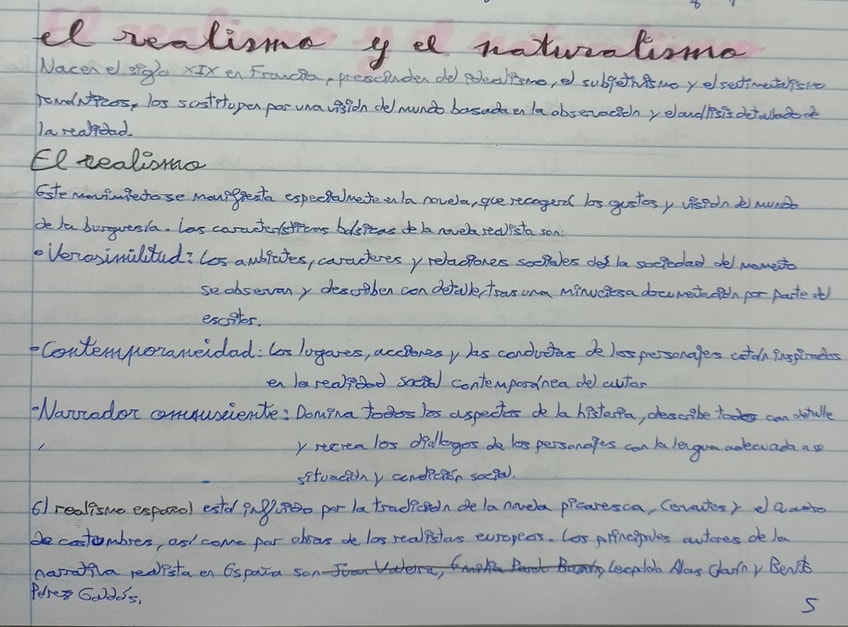 el realismo y el naturalismo
Nacen el siglo XIX en Francia, prescinden del idealismo, el subjetivismo y el sentimentalismo
románticos, los sustituyen por una visión del mundo basada en la observación y el análisis detallado de
la realidad.
El realismo
Este movimiento se manifiesta especialmente en la novela, que recogerá los gustos y visión del mundo
de la burguesía. Las características básicas de la novela realista son:
• Verosimilitud: Los ambientes, caracteres y relaciones sociales de la sociedad del momento
se observan y describen con detalle, tras una minuciosa documentación por parte del
escritor.
• Contemporaneidad: Los lugares, acciones y las conductas de los personajes están inspirados
en la realidad social contemporánea del autor
• Narrador omnisciente: Domina todos los aspectos de la historia, describe todo con detalle
y recrea los diálogos de los personajes con la lengua adecuada a su
situación y condición social.
El realismo español está influido por la tradición de la novela picaresca, Cervantes y el cuadro
de costumbres, así como por obras de los realistas europeos. Los principales autores de la
narrativa realista en España son Juan Valera, Emilia Pardo Bazán, Leopoldo Alas Clarín y Benito
Pérez Galdós.
5